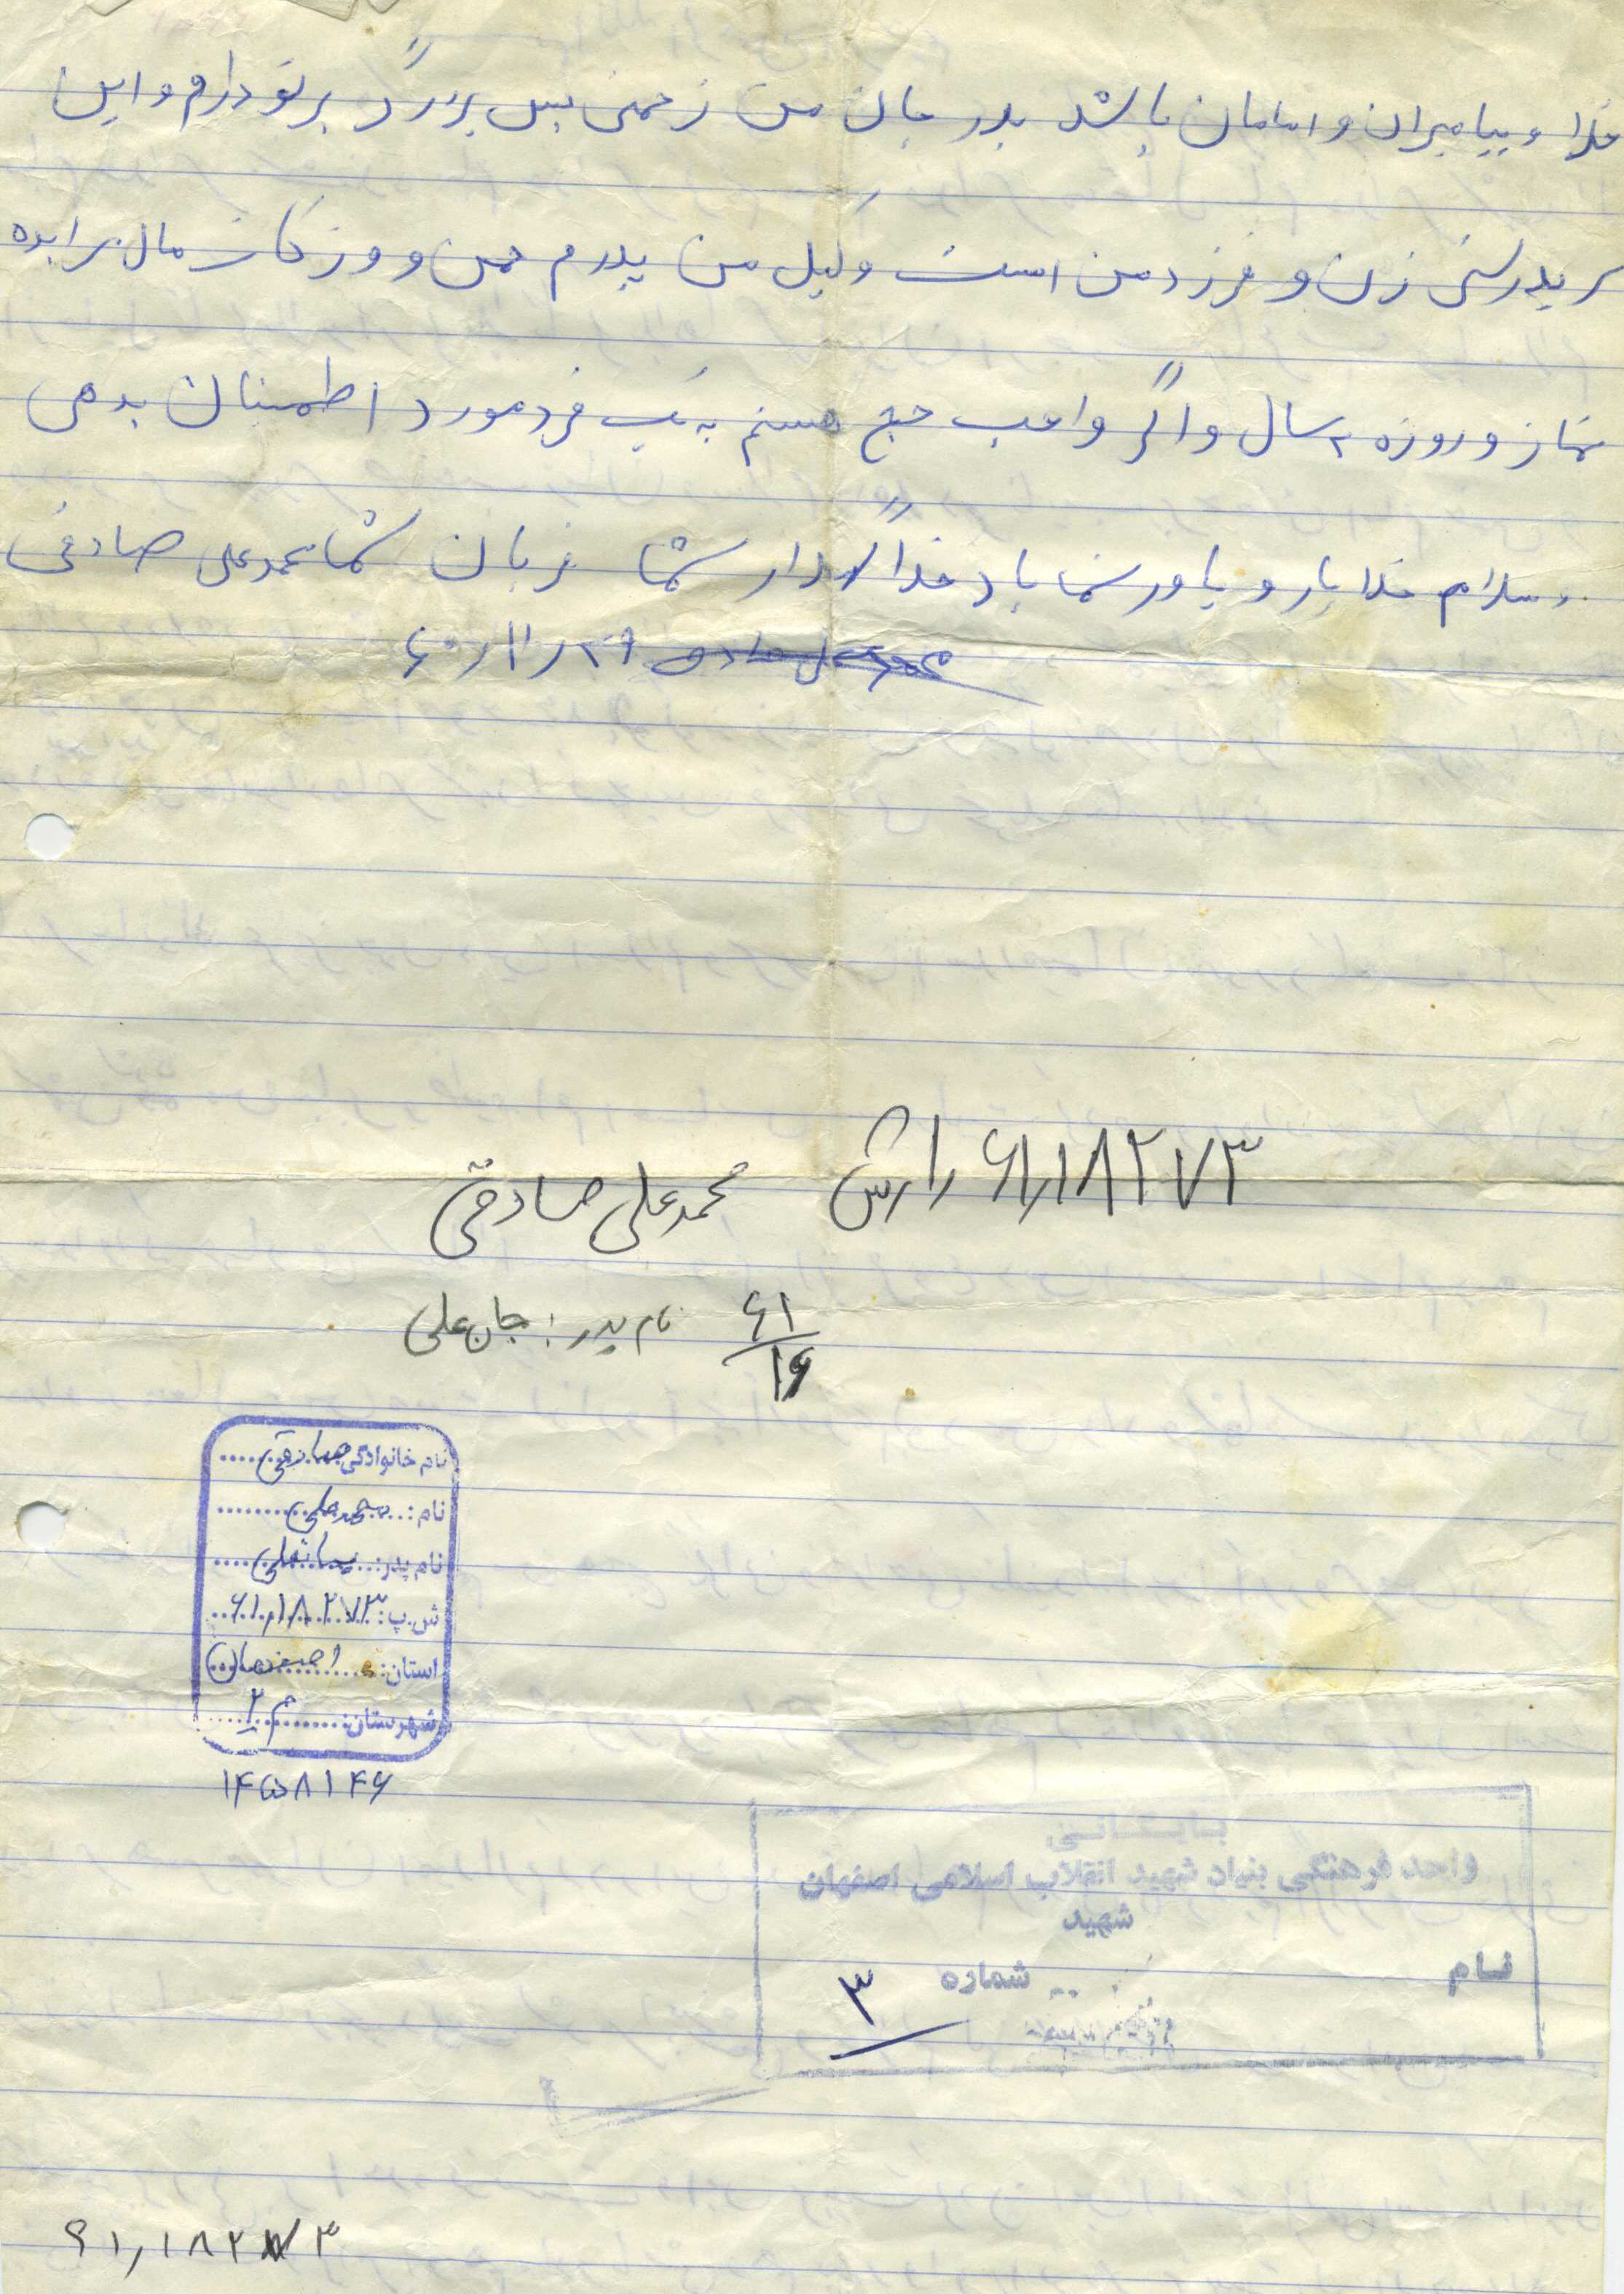 خدا و پیامبران و امامان باشد پدر جان من زحمتی بس بزرگ بر تو دارم و این
سرپرستی زن و فرزند من است وکیل من پدرم حسن و وز
نماز و روزه ۲ سال و اگر واجب حج هستم به یک فرد مورد اطمینان بدهی
وسلام خدا یار و یاور شما باد خدانگهدار شما قربان شما محمدعلی صادقی
۶۰/۱۱/۲۹
۶۱٫۱۸۲۷۳ محمدعلی صادقی
۶۱/۱۶ نام پدر: جان علی
نام خانوادگی صادقی
نام: محمدعلی
نام پدر: جانعلی
ش.پ: ۶۱٫۱۸۲۷۳
استان: اصفهان
شهرستان: م ۲
۱۴۵۸۱۴۶
بایگانی
واحد فرهنگی بنیاد شهید انقلاب اسلامی اصفهان
شهید
نام شماره ۳
۶۱٫۱۸۲۷۳